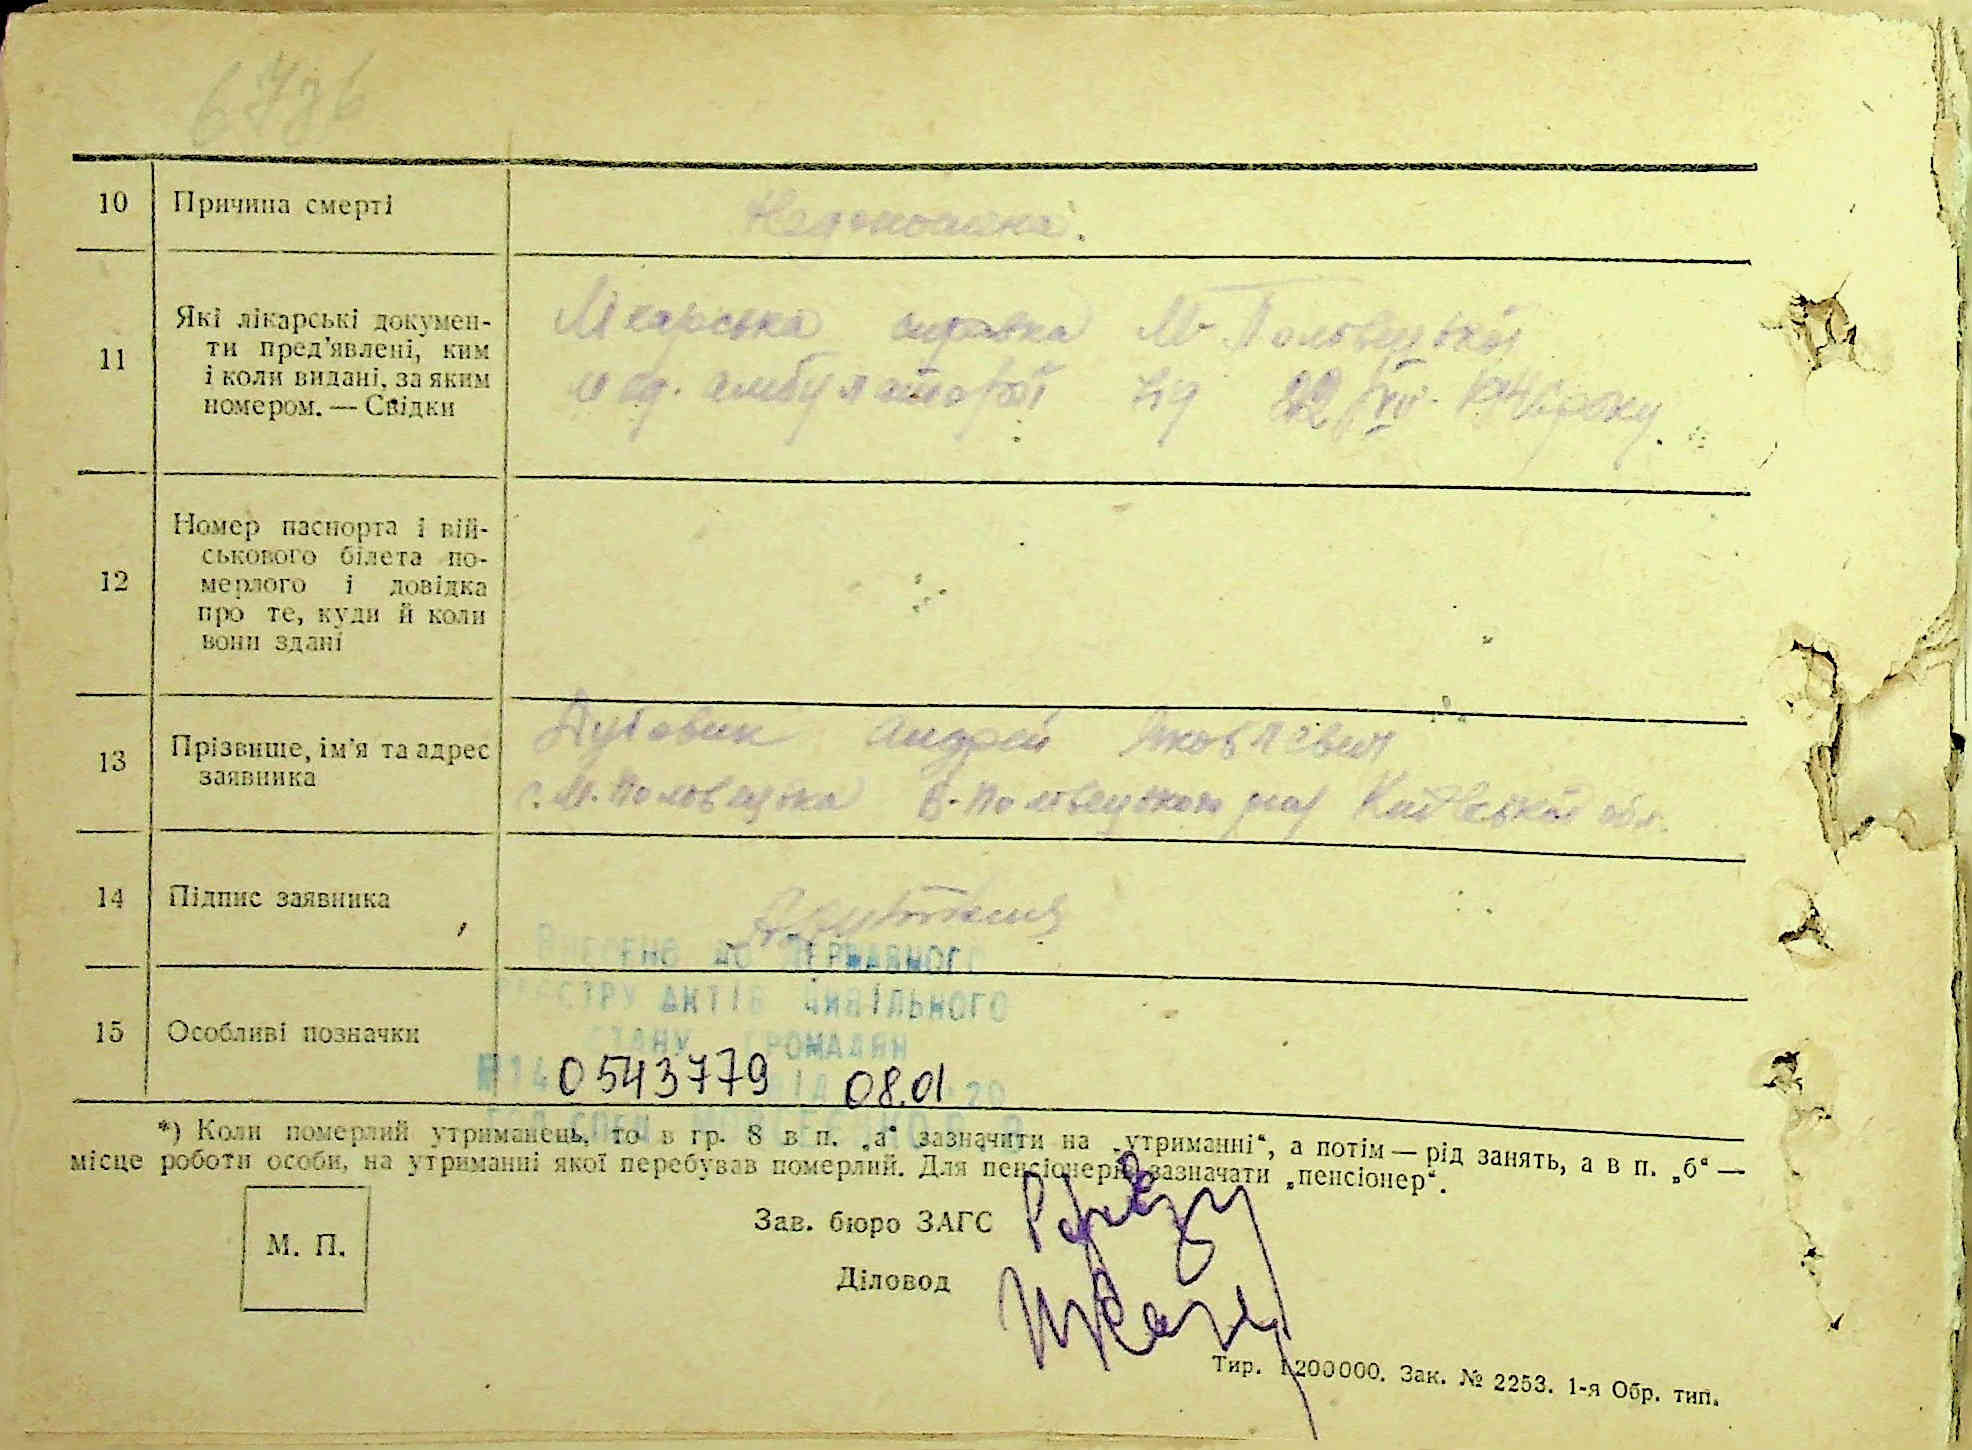 10 Причина смерті Недоношена.
11 Які лікарські докумен-
ти пред'явлені, ким
і коли видані, за яким
номером. — Свідки
Лікарська справка М-Половецької
мед. амбулаторії від 22/VII-
12 Номер паспорта і вій-
ськового білета по-
мерлого і довідка
про те, куди й коли
вони здані
13 Прізвище, ім'я та адрес
заявника
Андрей Яковлевич
с. М. Половецька В-Половецького рай Київської обл.
14 Підпис заявника
ВНЕСЕНО ДО ДЕРЖАВНОГО
РЕЄСТРУ АКТІВ ЦИВІЛЬНОГО
15 Особливі позначки
СТАНУ ГРОМАДЯН
0543779 08.01
*) Коли померлий утриманець, то в гр. 8 в п. „а“ зазначити на „утриманні“, а потім — рід занять, а в п. „б“ —
місце роботи особи, на утриманні якої перебував померлий. Для пенсіонерів зазначати „пенсіонер“.
М. П.
Зав. бюро ЗАГС
Діловод
Тир. 1200000. Зак. № 2253. 1-я Обр. тип.